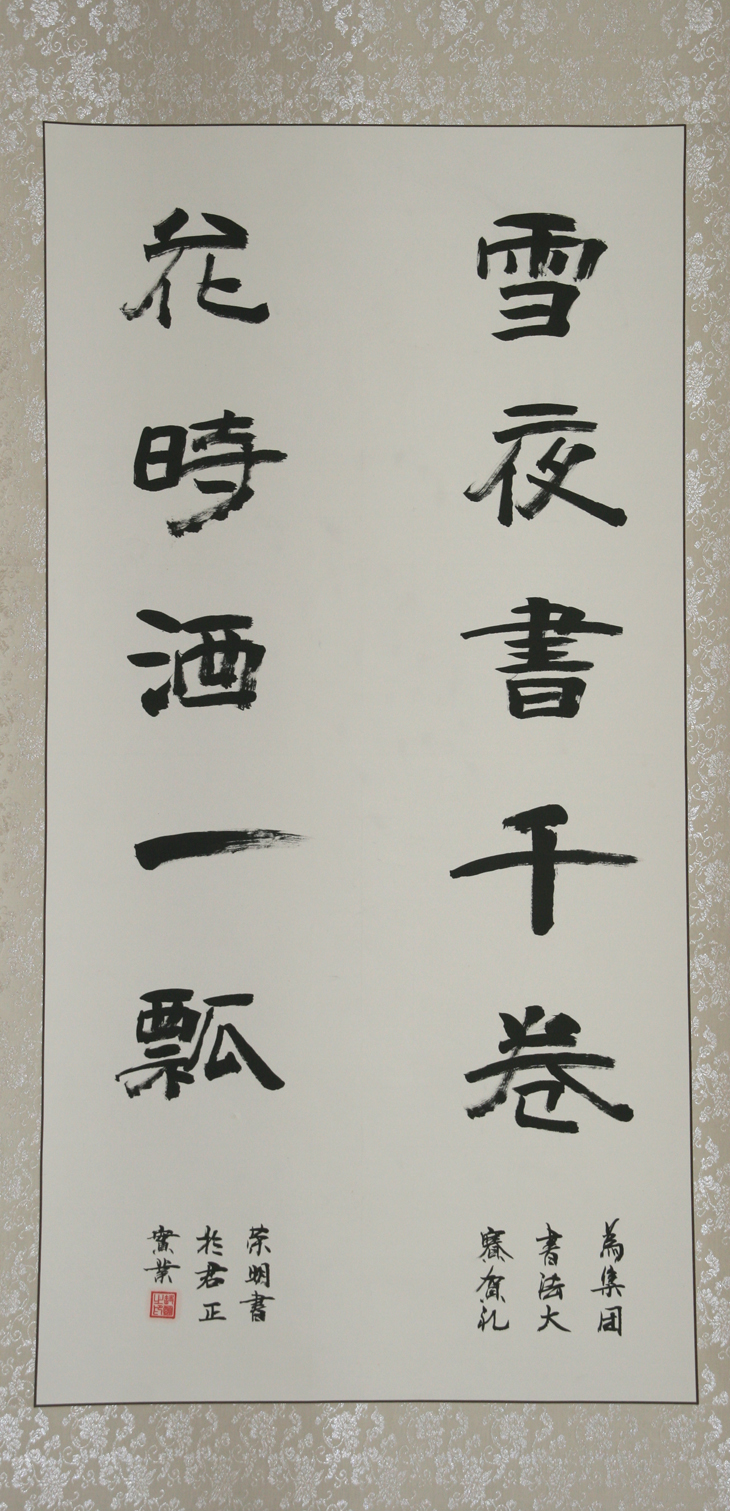 雪夜書千卷
花時酒一瓢
為集团
書法大
賽賀礼
荣明書
於君正
實業